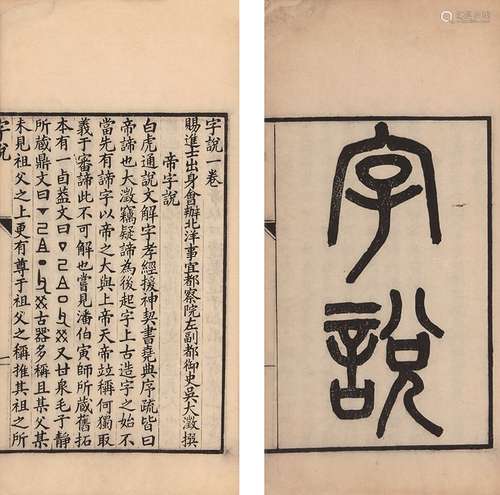 字說
字說一卷
賜進士出身會辦北洋事宜都察院左副都御史吳大澂撰
帝字說
白虎通說文解字孝經援神契書堯典序疏皆曰
帝諦也大澂竊疑諦為後起字上古造字之始不
當先有諦字以帝之大與上帝天帝竝稱何獨取
義于審諦此不可解也嘗見潘伯寅師所藏舊拓
本有一卣葢文曰 又甘泉毛子靜
所藏鼎文曰 古器多稱且某父某
未見祖父之上更有尊于祖父之稱推其祖之所
字說